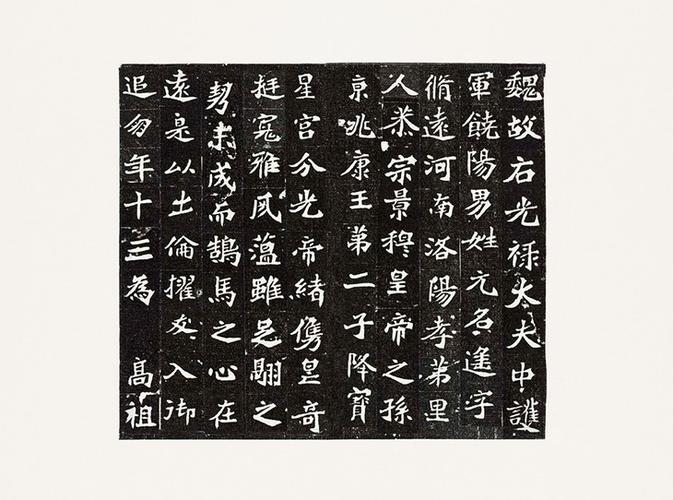 魏故右光禄大夫中護
軍饒陽男姓元名遥字
脩遠河南洛陽孝弟里
人恭宗景穆皇帝之孫
京兆康王弟二子降寳
星宮分光帝緒儁皃奇
挺寬雅夙蕴雖足翮之
勢未成而鵠馬之心在
遠以土倫擢入御
追年十三為 高祖